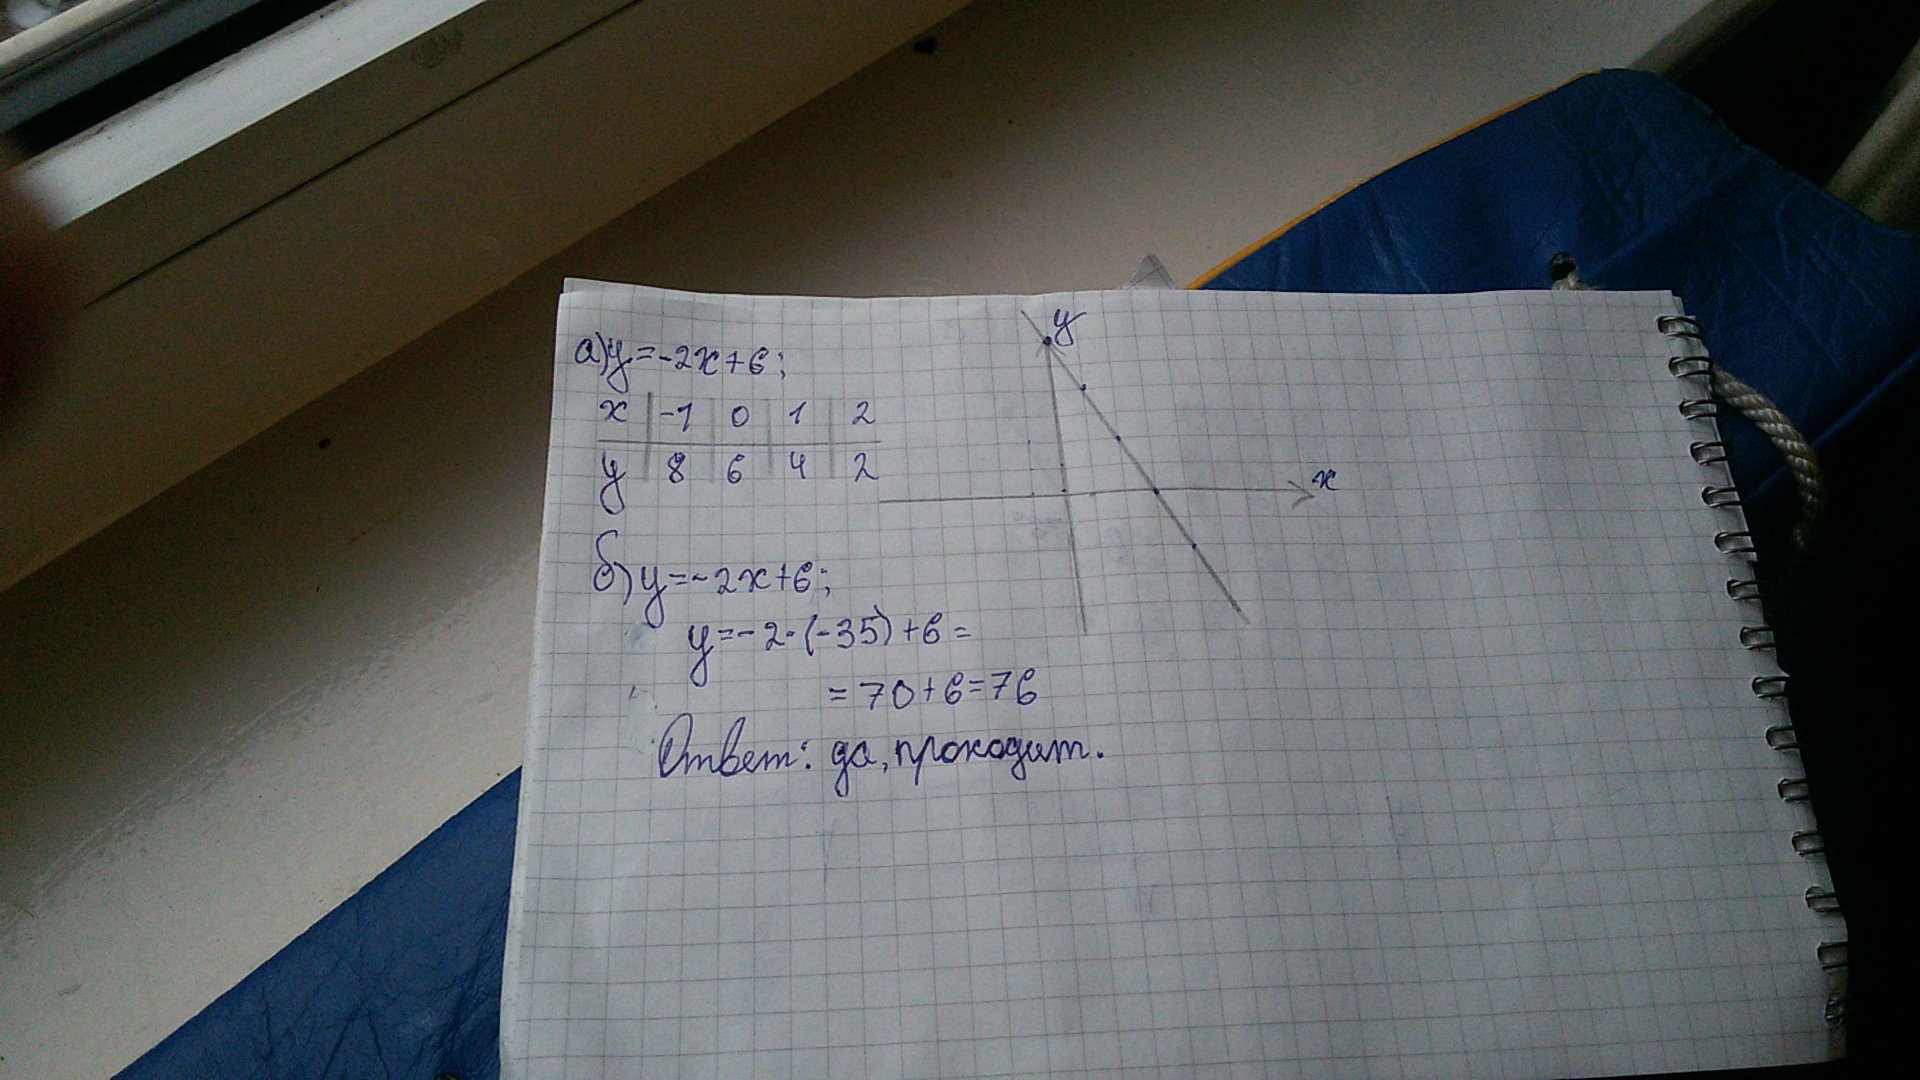 а) y=-2x+6;
x -1 0 1 2
y 8 6 4 2
y
x
б) y=-2x+6;
y=-2·(-35)+6=
=70+6=76
Ответ: да, проходит.